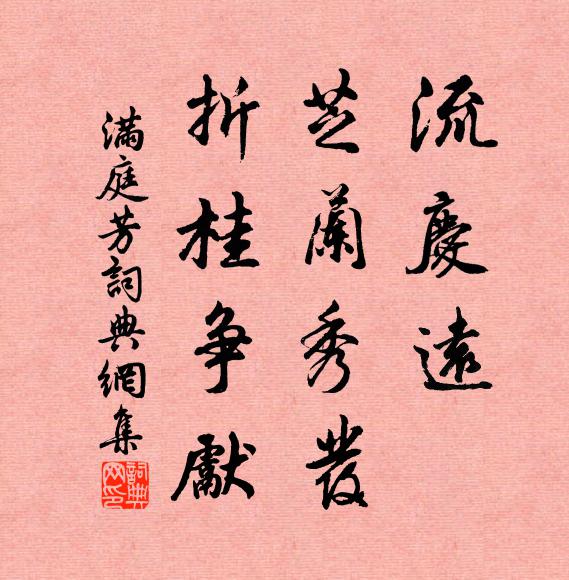 流慶遠
芝蘭秀發
折桂争獻
滿庭芳詞典網集
詞典网印